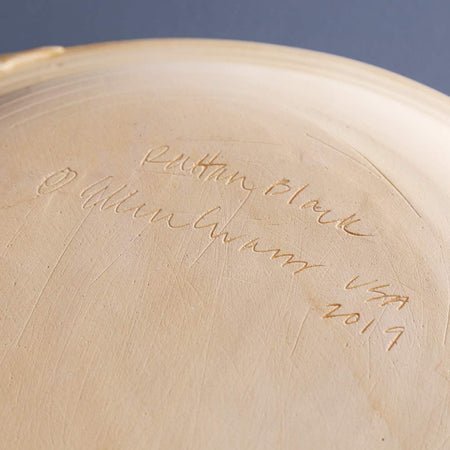 Rattan Black
© Allen
USA
2019